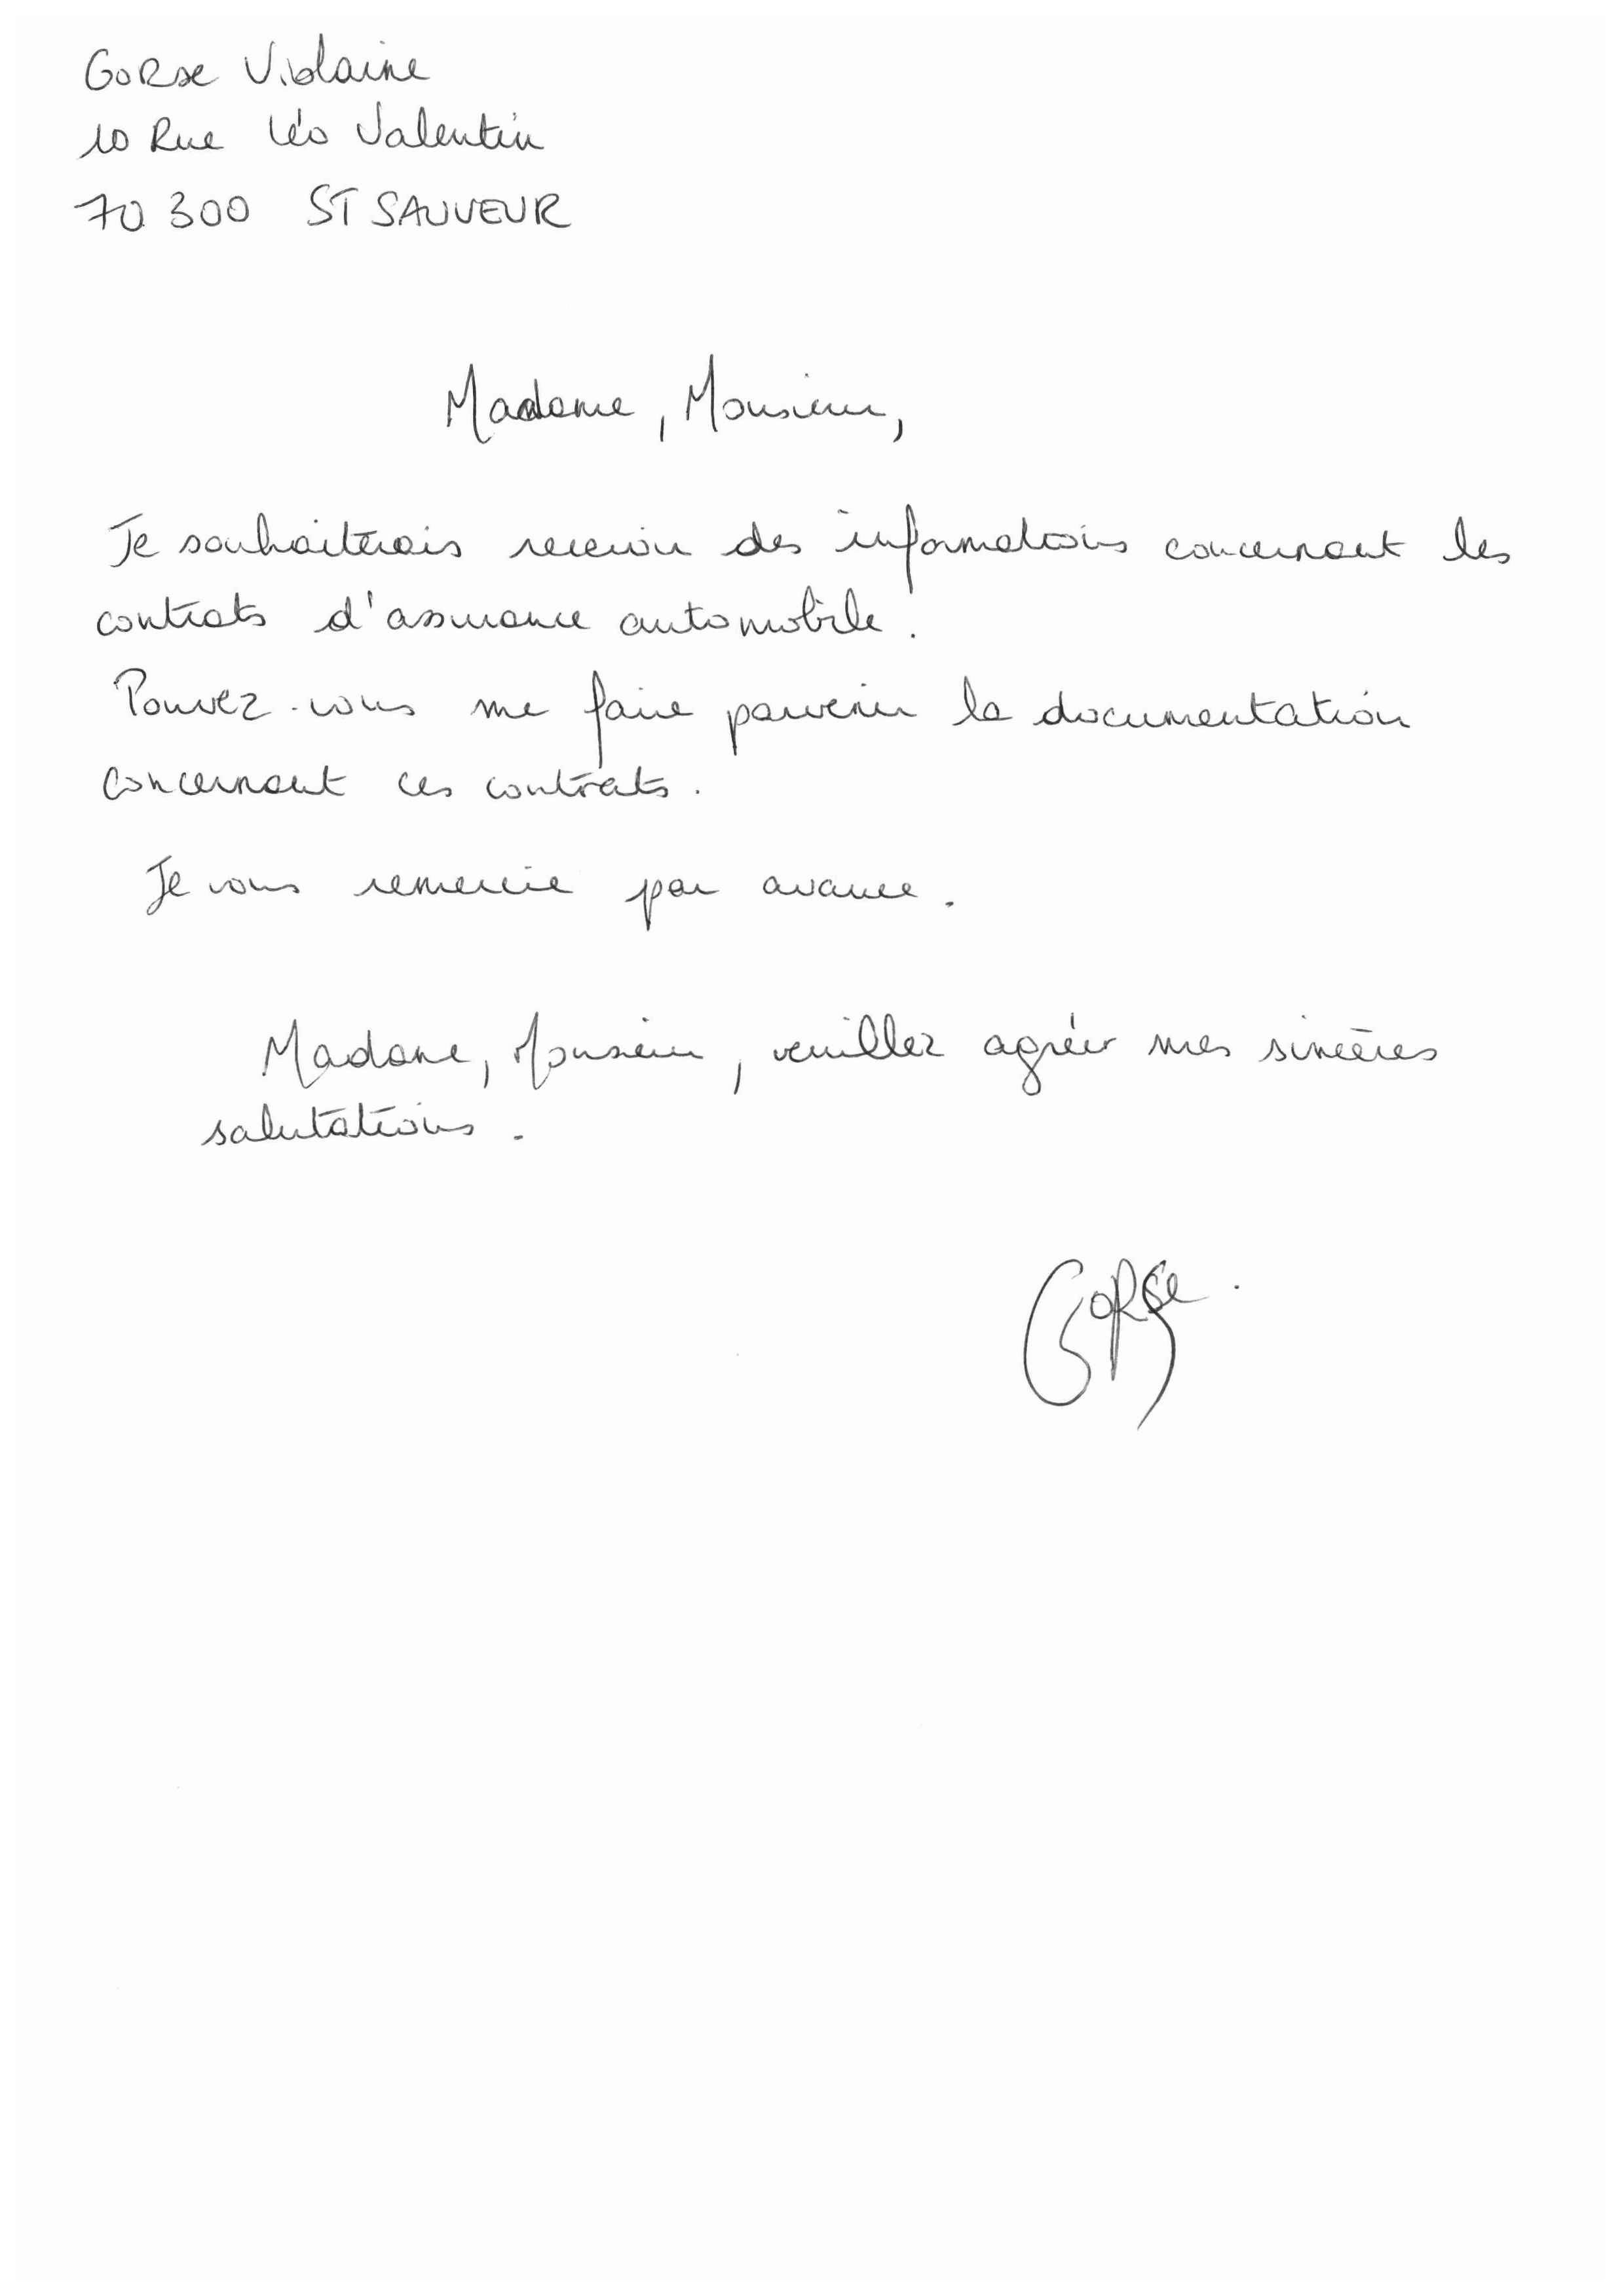 GORSE Violaine
10 Rue Léo Valentin
70 300 ST SAUVEUR
Madame, Monsieur,
Je souhaiterais recevoir des informations concernant les
contrats d'assurance automobile.
Pouvez-vous me faire parvenir la documentation
concernant ces contrats.
Je vous remercie par avance.
Madame, Monsieur, veuillez agréer mes sincères
salutations.
GORSE.